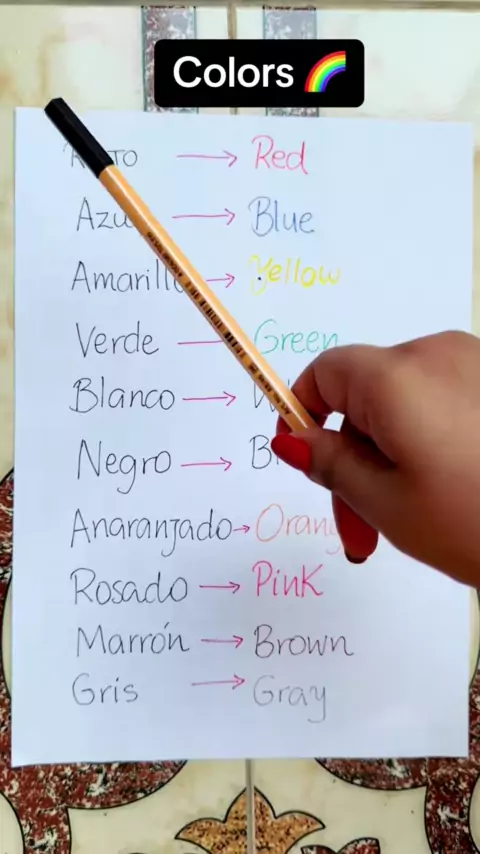 Colors 🌈
→ Red
→ Blue
→ Yellow
Verde → Green
Blanco →
Negro →
Anaranjado →
Rosado → Pink
Marrón → Brown
Gris → Gray